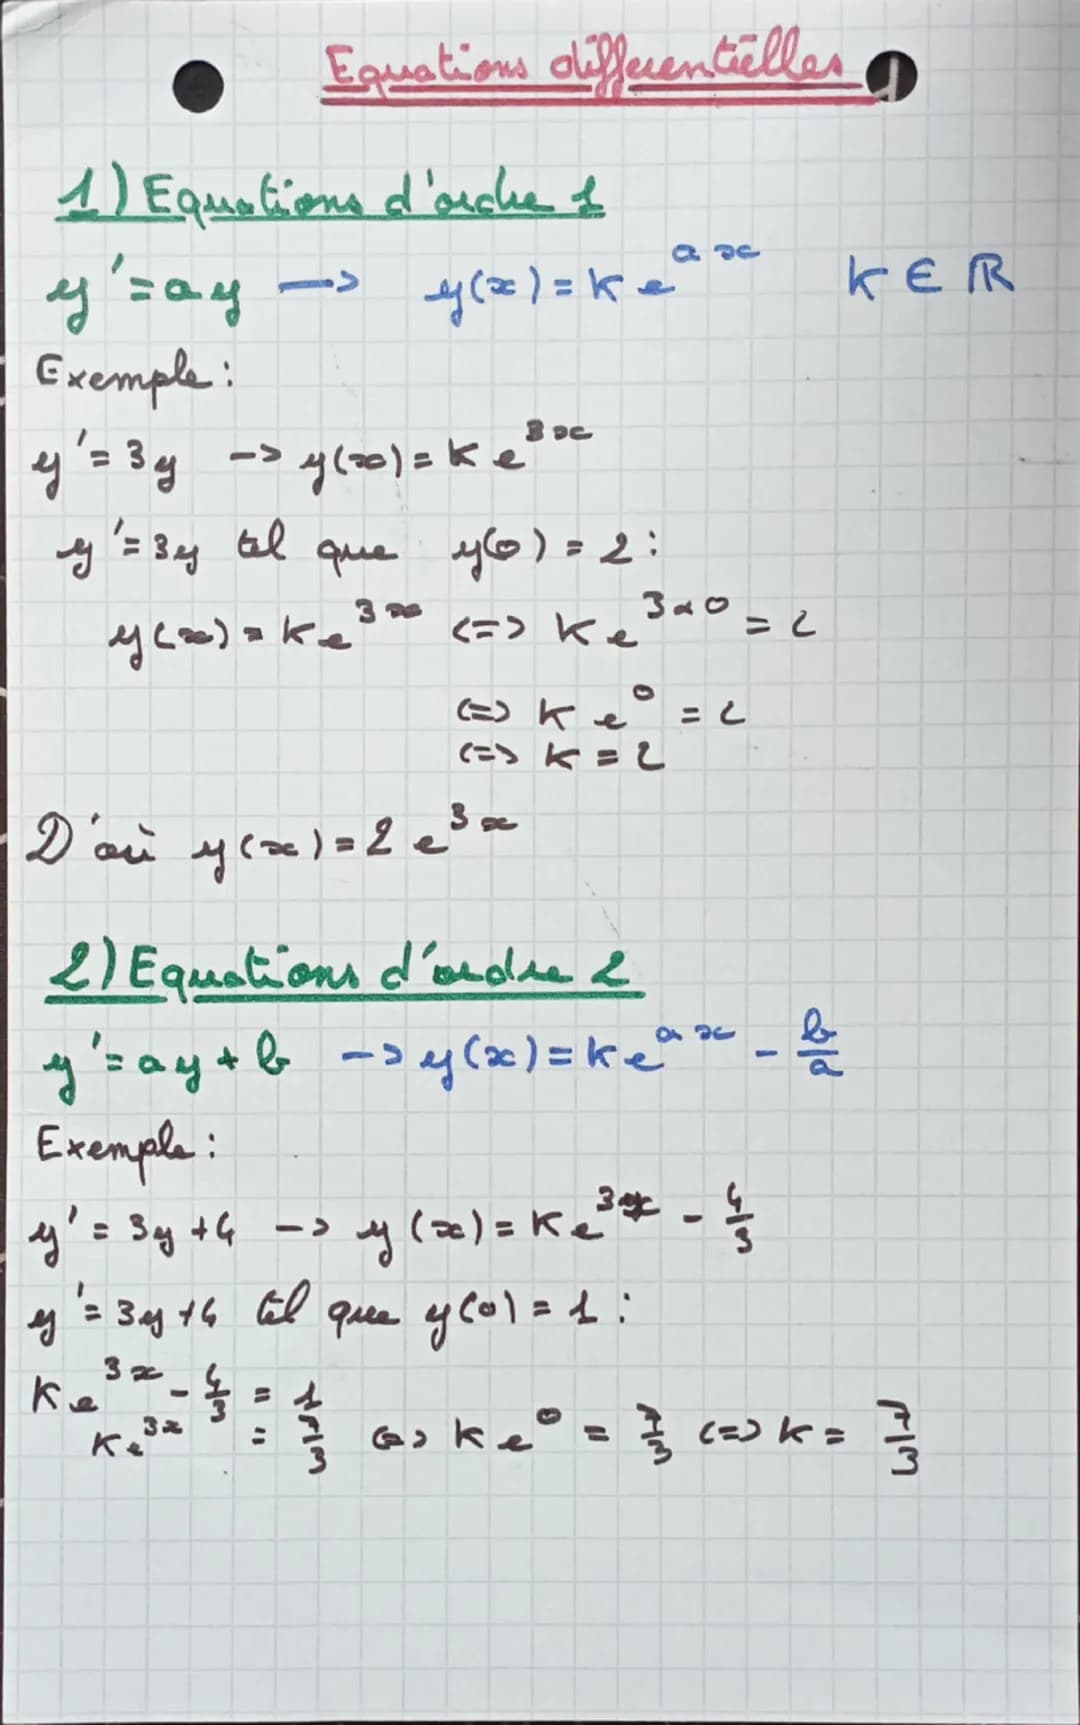 Equations différentielles
1) Equations d'ordre 1
y' = ay —> y(x) = k e^{ax} k ∈ ℝ
Exemple :
y' = 3y -> y(x) = k e^{3x}
y' = 3y tel que y(0) = 2 :
y(x) = k e^{3x} <=> k e^{3×0} = 2
<=> k e^{0} = 2
<=> k = 2
D'où y(x) = 2 e^{3x}
2) Equations d'ordre 2
y' = ay + b -> y(x) = k e^{ax} - b/a
Exemple :
y' = 3y + 4 -> y(x) = k e^{3x} - 4/3
y' = 3y + 4 tel que y(0) = 1 :
k e^{3x} - 4/3 = 1
k e^{3x} = 7/3 <=> k e^{0} = 7/3 <=> k = 7/3